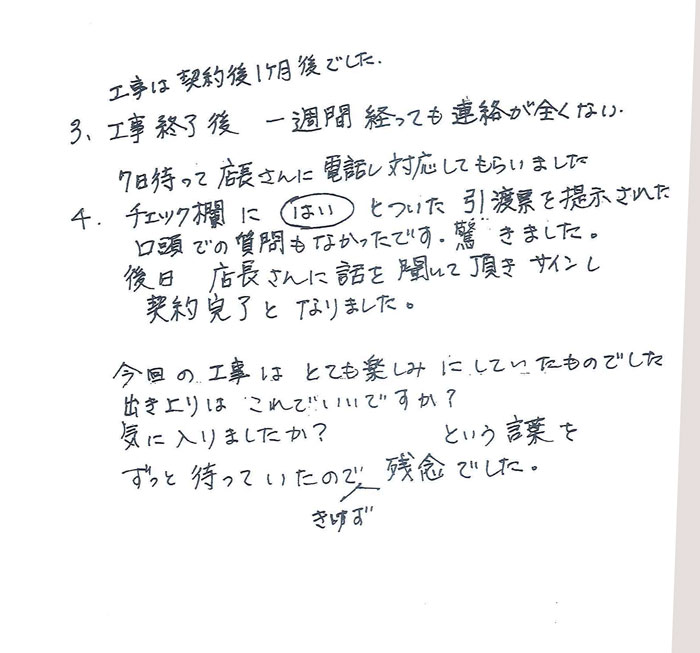 工事は契約後1ケ月後でした.
3、工事終了後 一週間経っても連絡が全くない.
7日待って店長さんに電話し対応してもらいました
4. チェック欄に はい とついた引渡票を提示された
口頭での質問もなかったです. 驚きました。
後日 店長さんに話を聞いて頂きサインし
契約完了となりました。
今回の工事はとても楽しみにしていたものでした
出き上りはこれでいいですか?
気に入りましたか? という言葉を
ずっと待っていたので 残念でした。
きけず